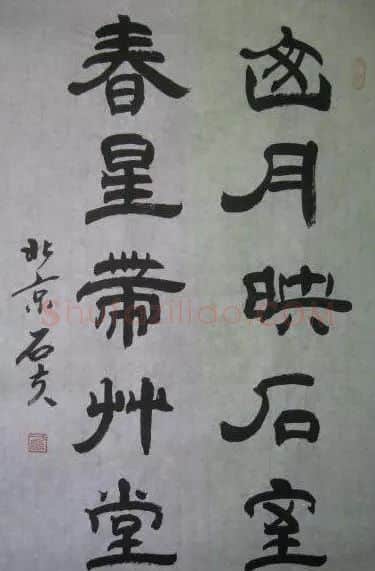 囪月映石室
春星帶艸堂
北京石
Shufaziliao.COM